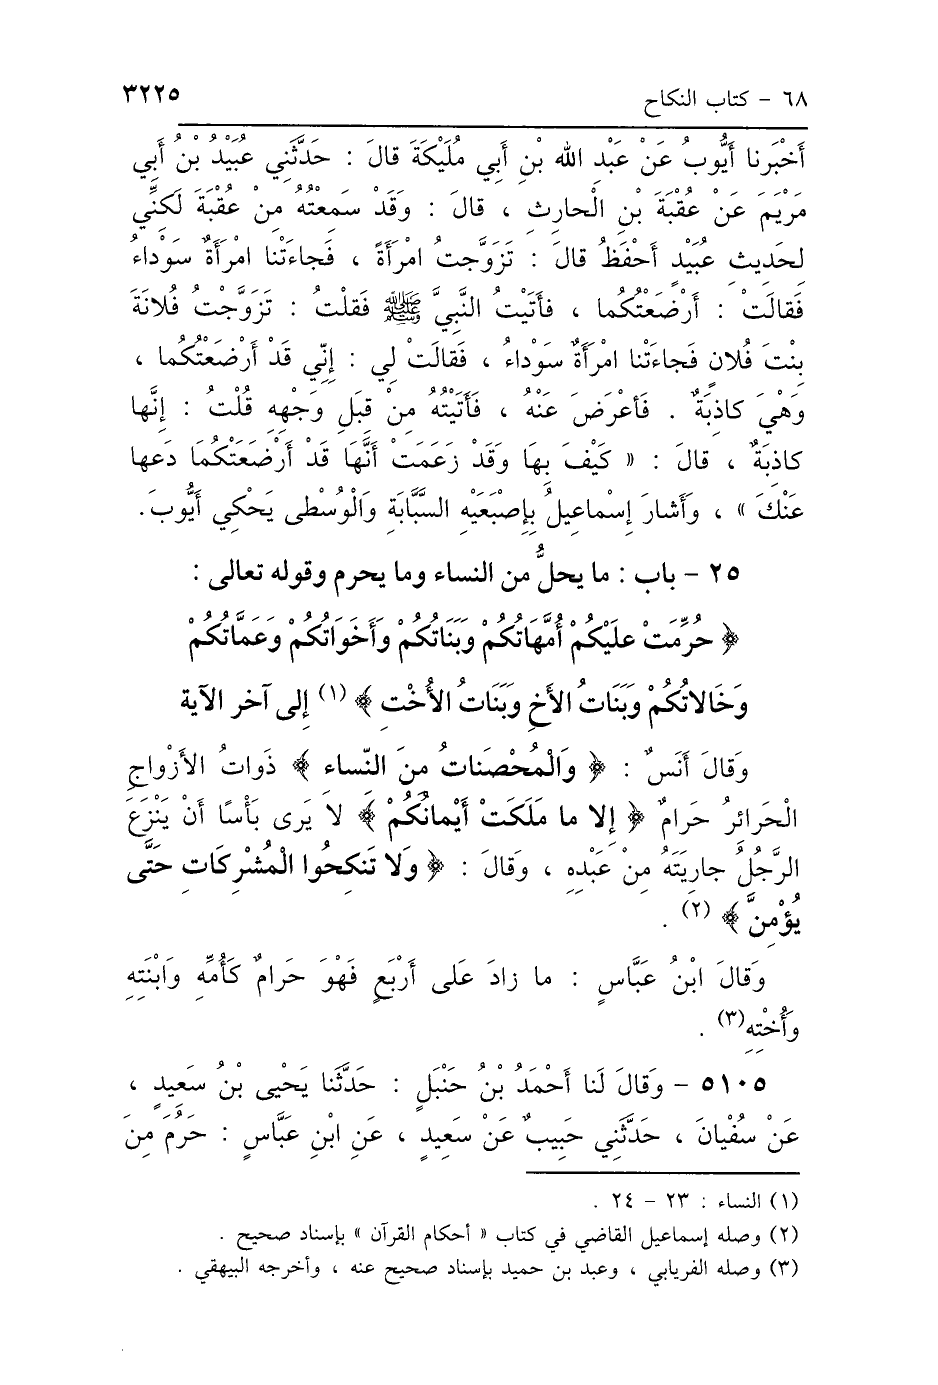 ٦٨ - كتاب النكاح ٣٢٢٥
أَخْبَرنا أَيُّوبُ عَنْ عَبْدِ الله بْنِ أَبي مُلَيْكَةَ قالَ : حَدَّثَني عُبَيْدُ بْنُ أَبي
مَرْيَمَ عَنْ عُقْبَةَ بْنِ الْحارِثِ ، قالَ : وَقَدْ سَمِعْتُهُ مِنْ عُقْبَةَ لَكِنِّي
لحَديثِ عُبَيْدٍ أَحْفَظُ قالَ : تَزَوَّجتُ امْرَأَةً ، فَجاءَتْنا امْرَأَةٌ سَوْداءُ
فَقالَتْ : أَرْضَعْتُكُما ، فأَتَيْتُ النَّبِيَّ ﷺ فَقلْتُ : تَزَوَّجْتُ فُلانَةَ
بِنْتَ فُلانٍ فَجاءَتْنا امْرَأَةٌ سَوْداءُ ، فَقالَتْ لي : إِنِّي قَدْ أَرْضَعْتُكُما ،
وَهْيَ كاذِبَةٌ . فَأعْرَضَ عَنْهُ ، فَأَتَيْتُهُ مِنْ قِبَلِ وَجْهِهِ قُلْتُ : إِنَّها
كاذِبَةٌ ، قالَ : « كَيْفَ بِهَا وَقَدْ زَعَمَتْ أَنَّهَا قَدْ أَرْضَعَتْكُمَا دَعها
عَنْكَ » ، وَأَشارَ إِسْماعيلُ بِإِصْبَعَيْهِ السَّبَّابَةِ والْوُسْطى يَحْكي أَيُّوبَ .
٢٥ - باب : ما يحلُّ من النساء وما يحرم وقوله تعالى :
﴿ حُرِّمَتْ عليْكُمْ أُمَّهَاتُكُمْ وَبَنَاتُكُمْ وأَخَوَاتُكُمْ وعَمَّاتُكُمْ
وَخَالاتُكُمْ وَبَنَاتُ الأَخِ وبَنَاتُ الأُخْتِ ﴾ (١) إلى آخر الآية
وَقالَ أَنَسٌ : ﴿ والْمُحْصَناتُ مِنَ النِّساءِ ﴾ ذَواتُ الأزْواجِ
الْحَرائِرُ حَرامٌ ﴿ إلا ما مَلَكَتْ أَيْمانُكُمْ ﴾ لا يَرى بَأْسًا أَنْ يَنْزِعَ
الرَّجُلُ جارِيَتَهُ مِنْ عَبْدِهِ ، وَقالَ : ﴿ وَلا تَنكِحُوا الْمُشْرِكَاتِ حَتَّى
يُؤْمِنَّ ﴾ (٢) .
وَقالَ ابْنُ عَبَّاسٍ : ما زادَ عَلى أَرْبَعٍ فَهْوَ حَرامٌ كَأُمِّهِ وَابْنَتِهِ
وأُخْتِهِ(٣) .
٥١٠٥ - وَقالَ لَنا أَحْمَدُ بْنُ حَنْبَلٍ : حَدَّثَنا يَحْيى بْنُ سَعِيدٍ ،
عَنْ سُفْيانَ ، حَدَّثَني حَبِيبٌ عَنْ سَعِيدٍ ، عَنِ ابْنِ عَبَّاسٍ : حَرُمَ مِنَ
(١) النساء : ٢٣ - ٢٤ .
(٢) وصله إسماعيل القاضي في كتاب « أحكام القرآن » بإسناد صحيح .
(٣) وصله الفريابي ، وعبد بن حميد بإسناد صحيح عنه ، وأخرجه البيهقي .